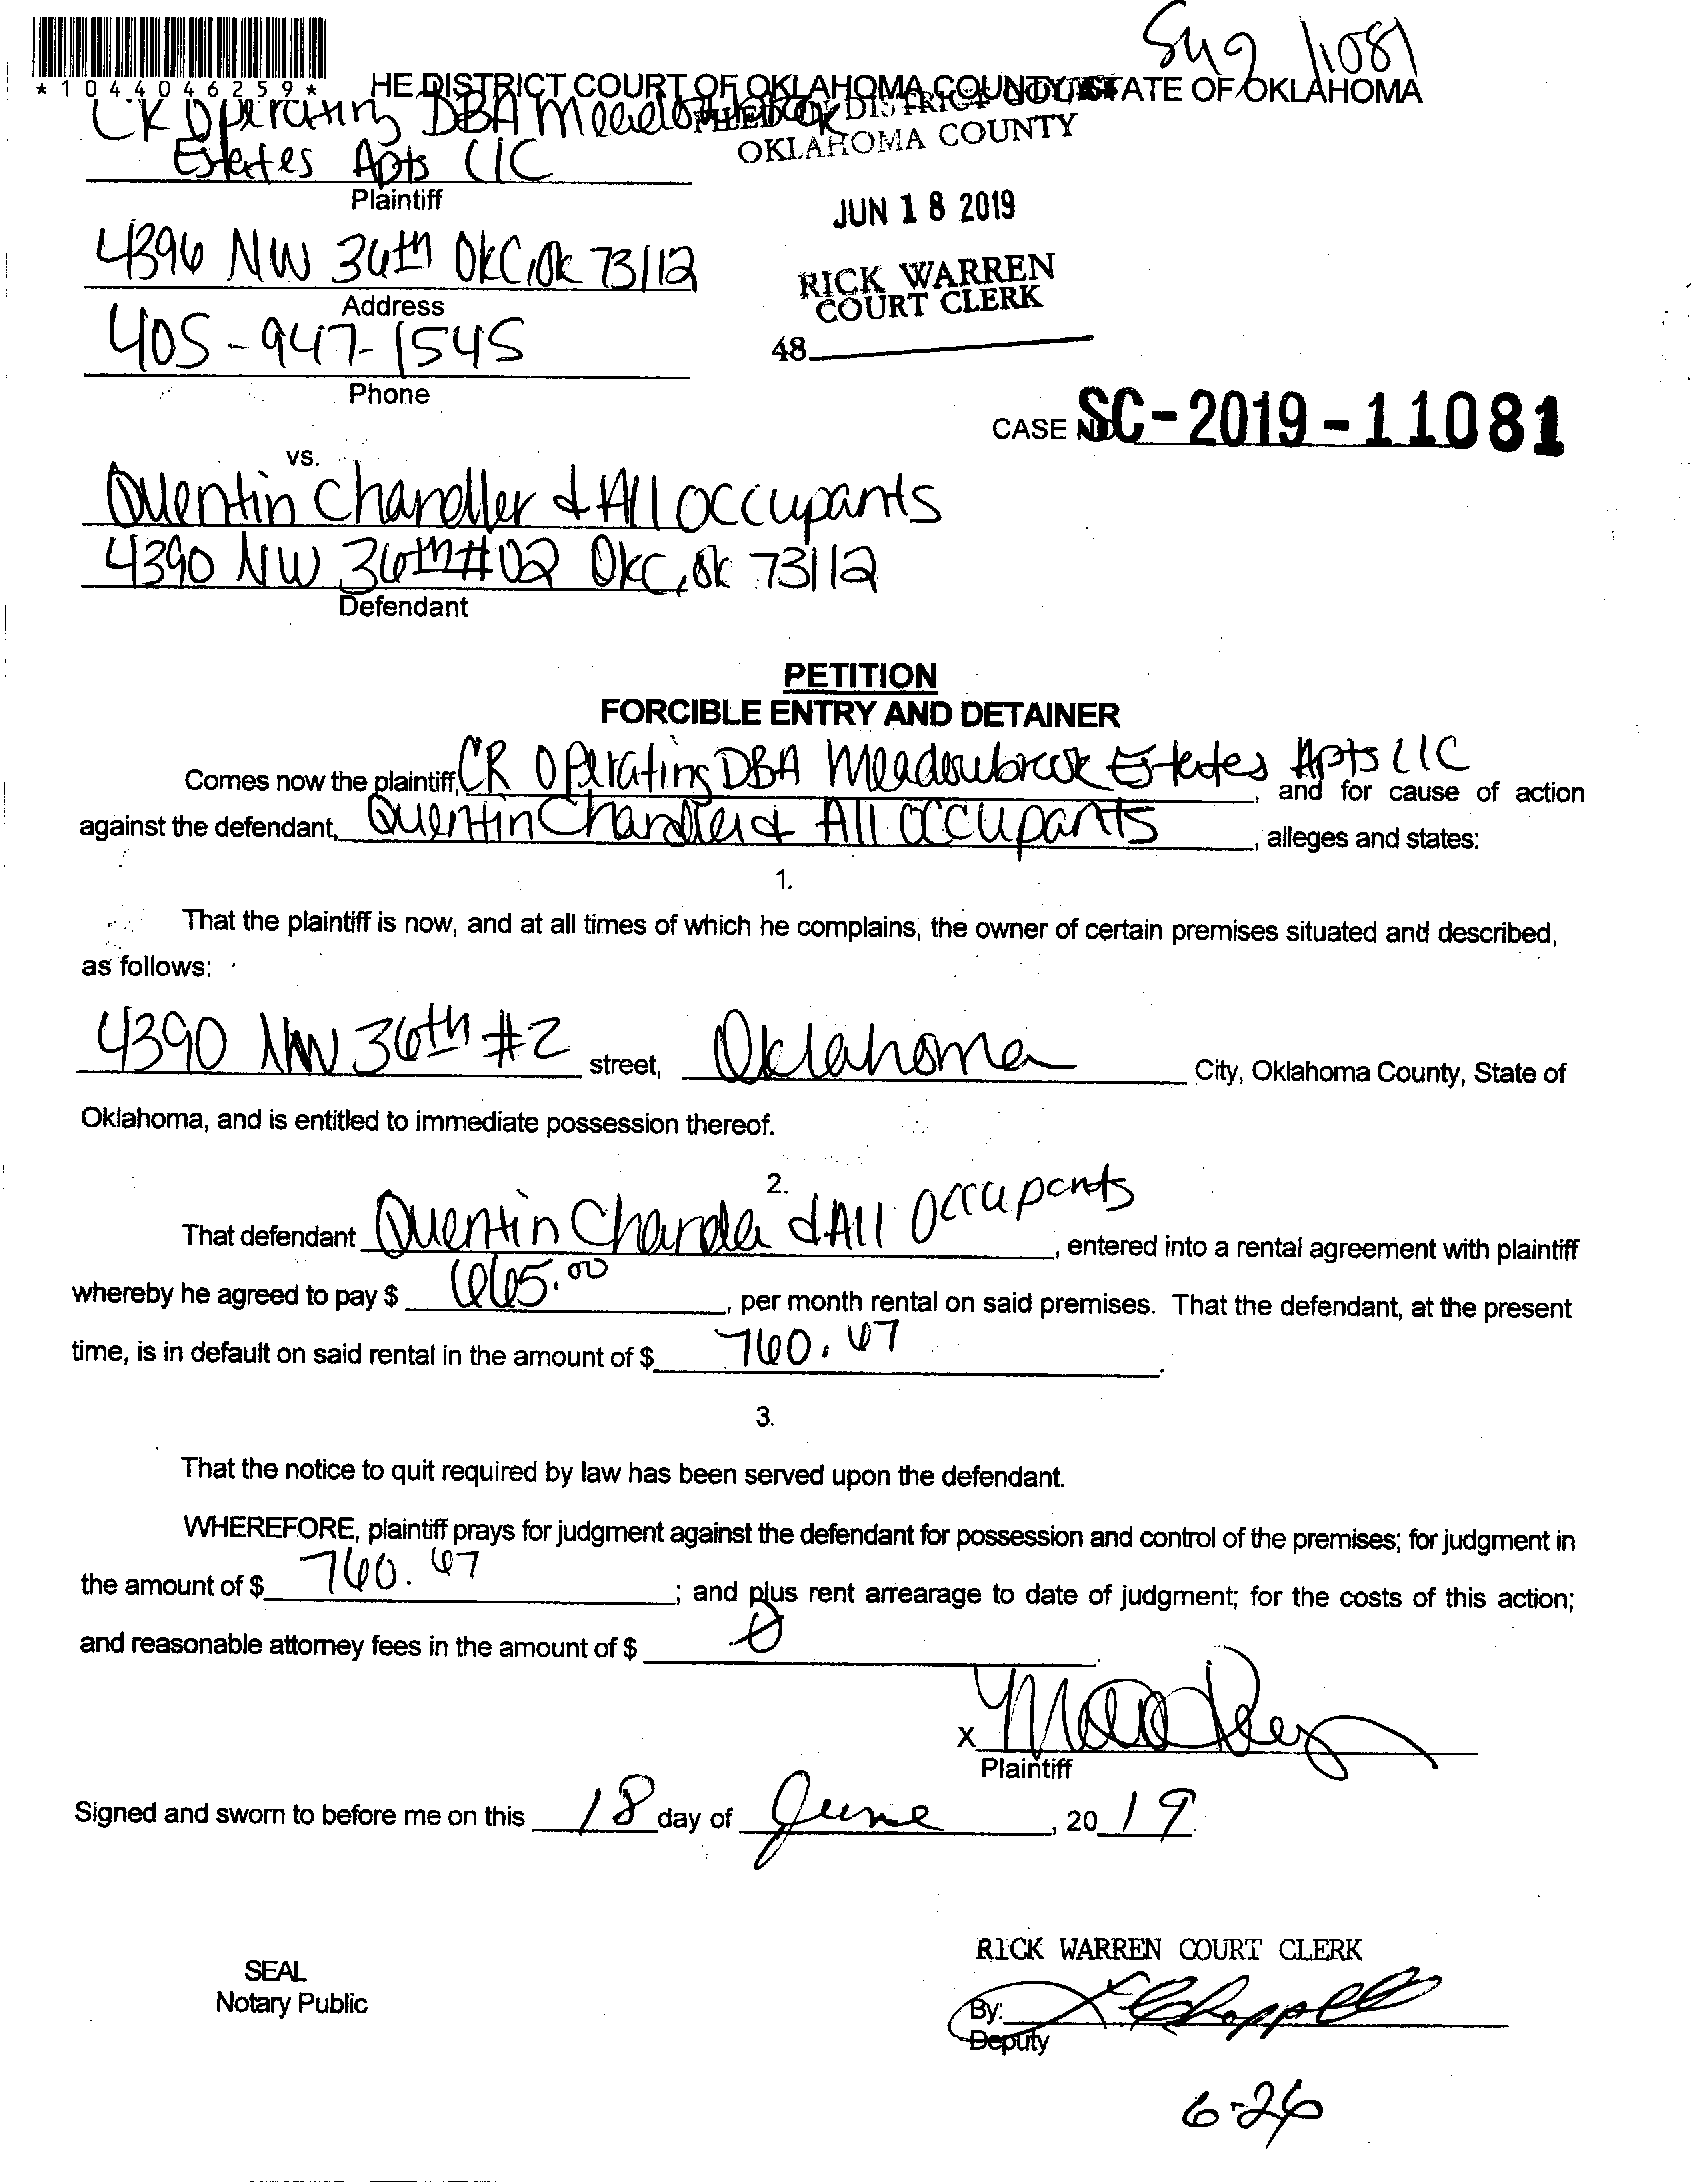 Su9 11081
*1044046259*
HE DISTRICT COURT OF OKLAHOMA COUNTY, STATE OF OKLAHOMA
CR Operating DBA Meadowbrook
FILED IN DISTRICT COURT
OKLAHOMA COUNTY
Estates Apts LLC
Plaintiff
JUN 18 2019
4396 NW 36th OKC, OK 73112
RICK WARREN
COURT CLERK
Address
405-947-1545
48
Phone
CASE NO SC-2019-11081
vs.
Quentin Chandler & All occupants
4390 NW 36th #02 OKC, OK 73112
Defendant
PETITION
FORCIBLE ENTRY AND DETAINER
Comes now the plaintiff, CR Operating DBA Meadowbrook Estates Apts LLC, and for cause of action
against the defendant, Quentin Chandler & All occupants, alleges and states:
1.
That the plaintiff is now, and at all times of which he complains, the owner of certain premises situated and described,
as follows:
4390 NW 36th #2 street, Oklahoma City, Oklahoma County, State of
Oklahoma, and is entitled to immediate possession thereof.
2.
That defendant Quentin Chandler & All occupants, entered into a rental agreement with plaintiff
whereby he agreed to pay $ 665.00, per month rental on said premises. That the defendant, at the present
time, is in default on said rental in the amount of $ 760.67.
3.
That the notice to quit required by law has been served upon the defendant.
WHEREFORE, plaintiff prays for judgment against the defendant for possession and control of the premises; for judgment in
the amount of $ 760.67; and plus rent arrearage to date of judgment; for the costs of this action;
and reasonable attorney fees in the amount of $ 0.
X
Plaintiff
Signed and sworn to before me on this 18 day of June, 2019.
RICK WARREN COURT CLERK
SEAL
Notary Public
By: Chappell
Deputy
6-26